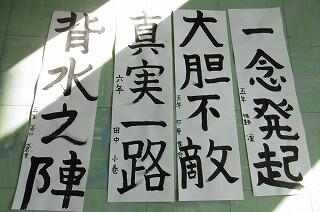 一念発起
五年
大胆不敵
五年
真実一路
六年
田中 小巻
背水之陣